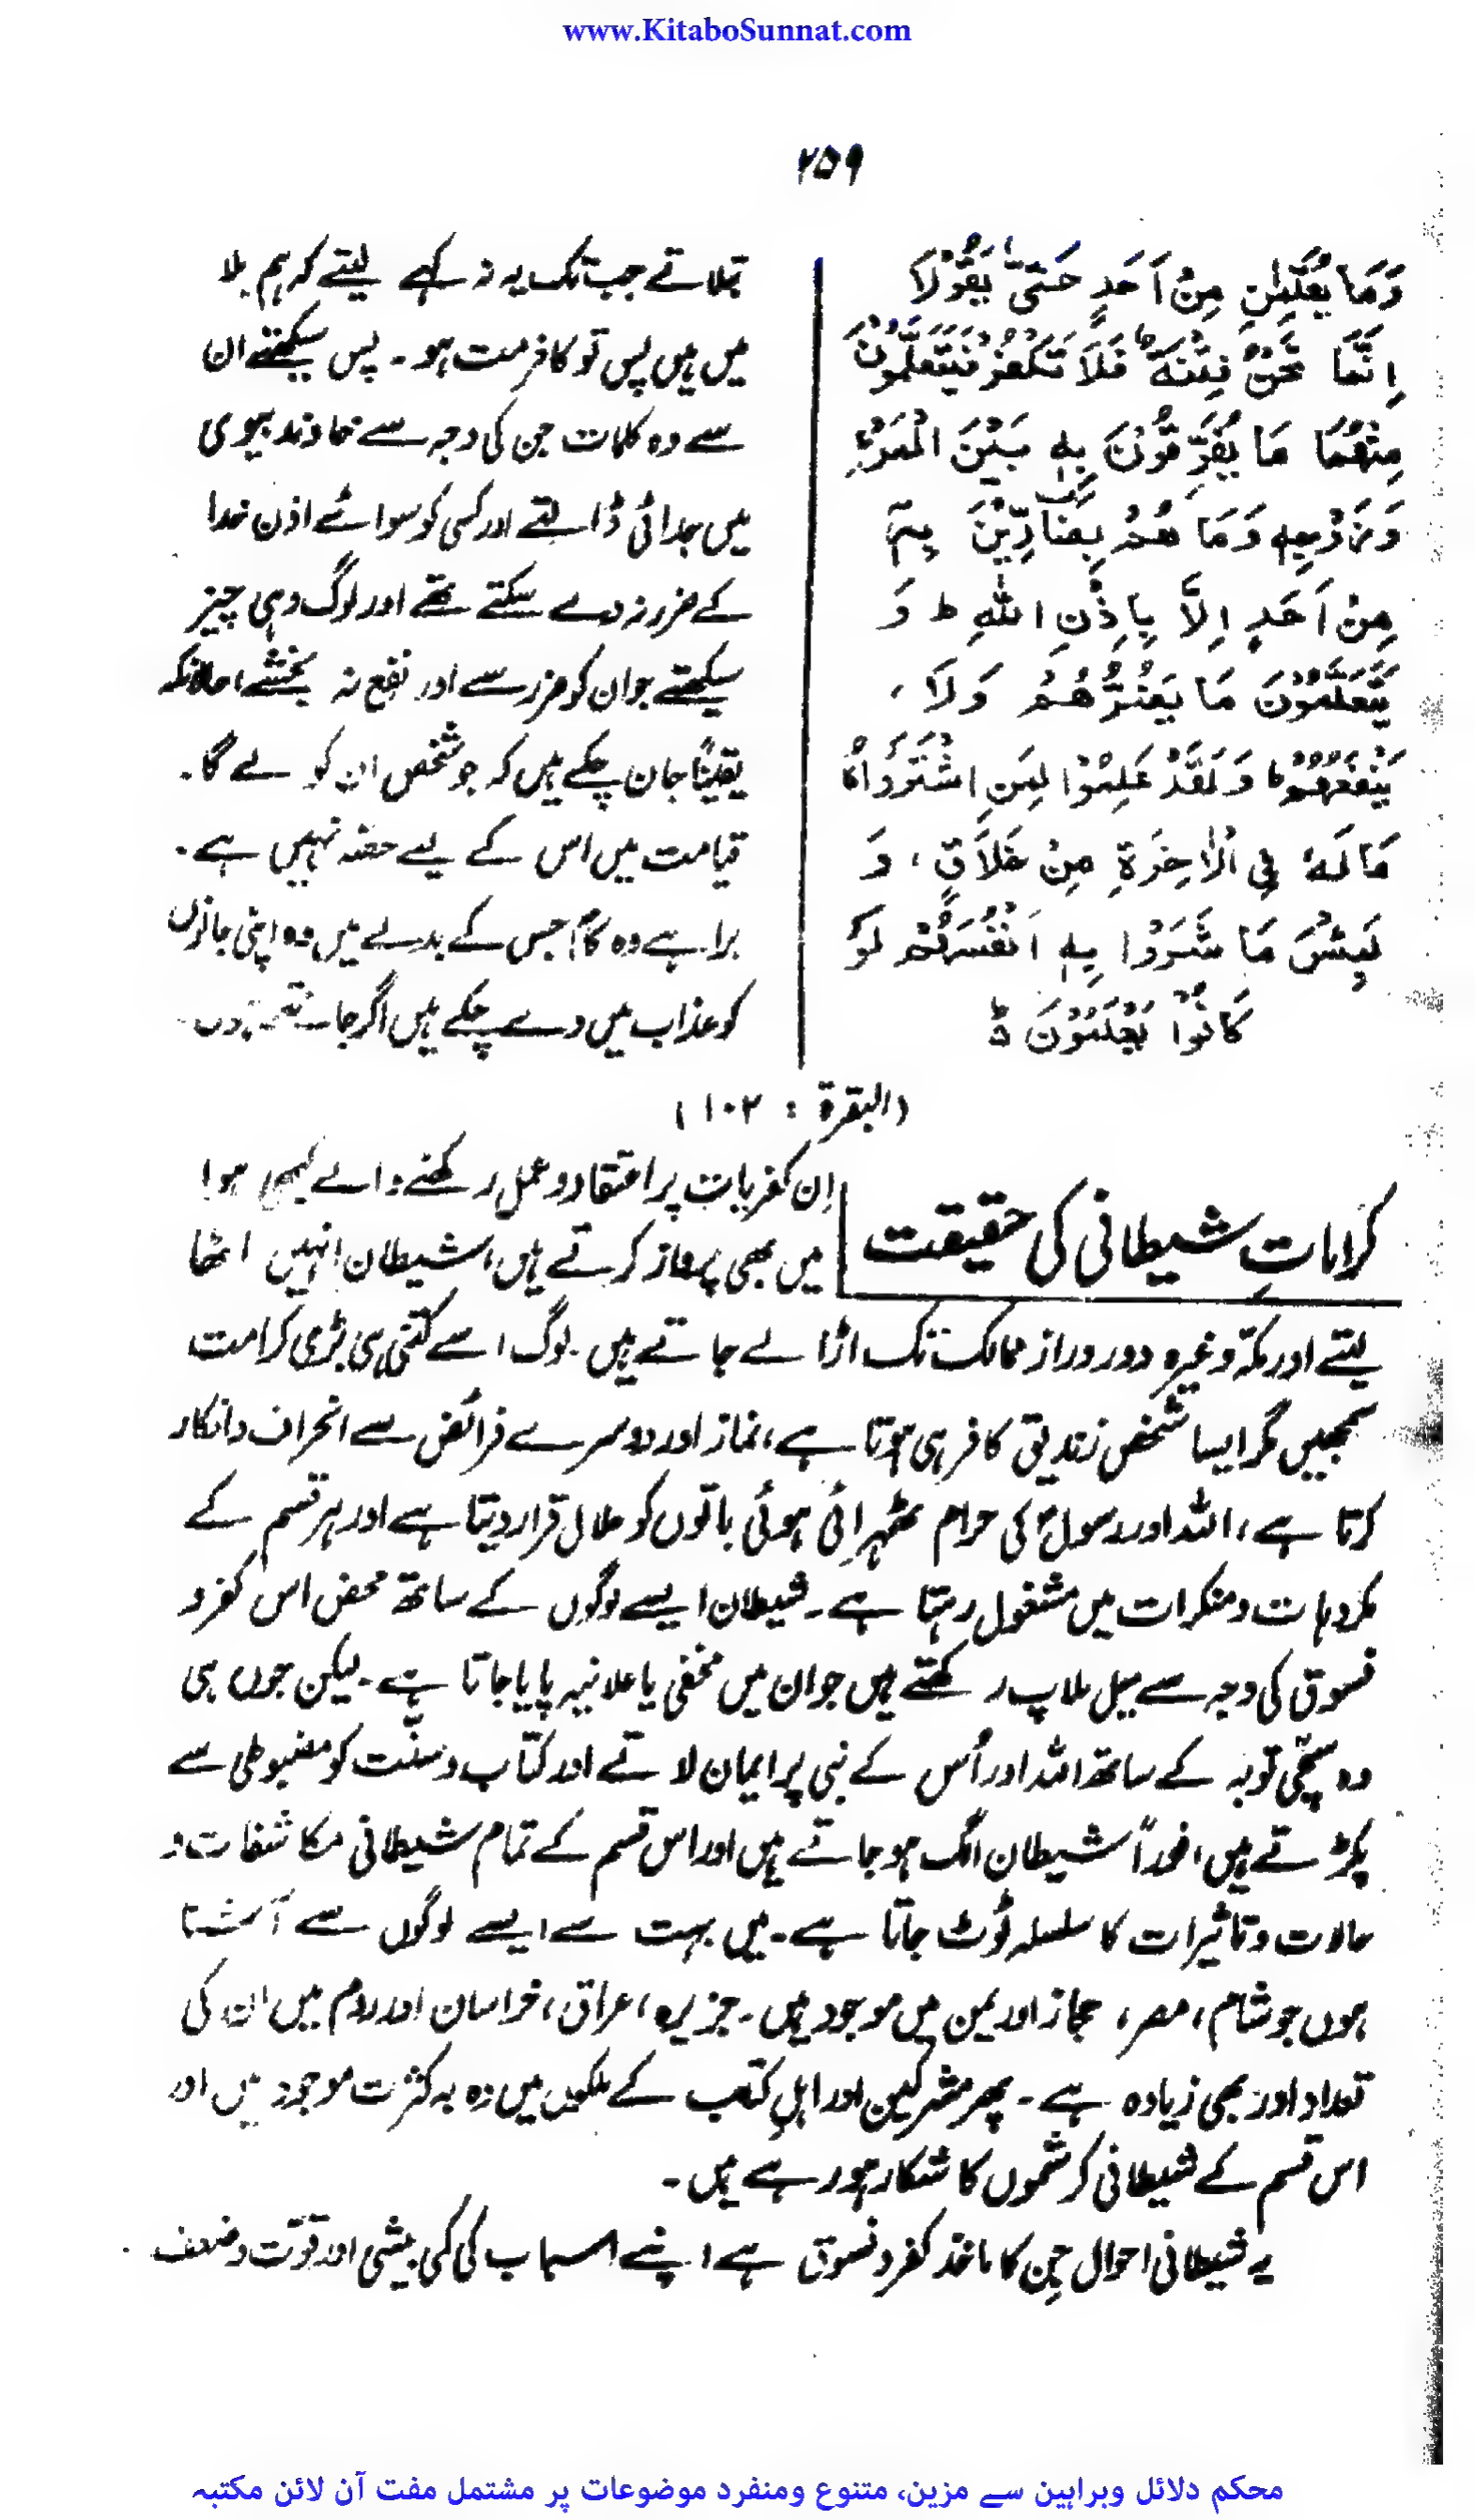 www.KitaboSunnat.com
۲۵۹
وَمَا يُعَلِّمٰنِ مِنْ اَحَدٍ حَتّٰى يَقُوْلَاۤ
اِنَّمَا نَحْنُ فِتْنَةٌ فَلَا تَكْفُرْ فَيَتَعَلَّمُوْنَ
مِنْهُمَا مَا يُفَرِّقُوْنَ بِهٖ بَيْنَ الْمَرْءِ
وَزَوْجِهٖ وَمَا هُمْ بِضَآرِّيْنَ بِهٖ
مِنْ اَحَدٍ اِلَّا بِاِذْنِ اللّٰهِ ط وَ
يَتَعَلَّمُوْنَ مَا يَضُرُّهُمْ وَلَا
يَنْفَعُهُمْ ط وَلَقَدْ عَلِمُوْا لَمَنِ اشْتَرٰاهُ
مَا لَهٗ فِي الْاٰخِرَةِ مِنْ خَلَاقٍ، وَ
لَبِئْسَ مَا شَرَوْا بِهٖ اَنْفُسَهُمْ لَوْ
كَانُوْا يَعْلَمُوْنَ ط
بتلاتے جب تک یہ نہ کہے لیتے کہ ہم بلا
میں ہیں پس تو کافر مت ہو۔ پس سیکھتے ان
سے وہ کلمات جن کی وجہ سے خاوند بیوی
میں جدائی ڈالتے اور کسی کو سوائے اذن خدا
کے ضرر نہ دے سکتے تھے اور لوگ وہی چیز
سیکھتے جو ان کو ضرر سے اور نفع نہ بخشے، حالانکہ
یقیناً جان چکے ہیں کہ جو شخص ان کو لے گا۔
قیامت میں اس کے لیے حصہ نہیں ہے۔
برا ہے وہ کام جس کے بدلے میں وہ اپنی جانوں
کو عذاب میں دے چکے ہیں اگر جانتے ہوں۔
(البقرۃ : ۱۰۲)
کراماتِ شیطانی کی حقیقت
اِن کفریات پر اعتقاد و عمل رکھنے والے کبھی ہوا
میں بھی پرواز کرتے ہیں، شیطان انہیں اٹھا
لیتے اور مکہ وغیرہ دور دراز ممالک تک اڑا لے جاتے ہیں۔ لوگ اسے کتنی ہی بڑی کرامت
سمجھیں مگر ایسا شخص زندیق کافر ہی ہوتا ہے، نماز اور دوسرے فرائض سے انحراف و انکار
کرتا ہے، اللہ اور رسولؐ کی حرام ٹھہرائی ہوئی باتوں کو حلال قرار دیتا ہے اور ہر قسم کے
مکروہات و منکرات میں مشغول رہتا ہے۔ شیطان ایسے لوگوں کے ساتھ محض اس کفر و
فسوق کی وجہ سے میل ملاپ رکھتے ہیں جو ان میں مخفی یا علانیہ پایا جاتا ہے۔ لیکن جوں ہی
وہ سچّی توبہ کے ساتھ اللہ اور اُس کے نبی پر ایمان لاتے اور کتاب و سنّت کو مضبوطی سے
پکڑتے ہیں، فوراً شیطان الگ ہو جاتے ہیں اور اس قسم کے تمام شیطانی مکاشفات و
حالات و تاثیرات کا سلسلہ ٹوٹ جاتا ہے۔ میں بہت سے ایسے لوگوں سے آشنا
ہوں جو شام، مصر، حجاز اور یمن میں موجود ہیں۔ جزیرہ، عراق، خراسان اور روم میں ان کی
تعداد اور بھی زیادہ ہے۔ پھر مشرکین اور اہلِ کتاب کے ملکوں میں وہ بہ کثرت موجود ہیں اور
اس قسم کے شیطانی کرشموں کا شکار ہو رہے ہیں۔
یہ شیطانی احوال جن کا ماخذ کفر و فسوق ہے اپنے اسباب کی کمی بیشی اور قوّت و ضعف
محکم دلائل وبراہین سے مزین، متنوع ومنفرد موضوعات پر مشتمل مفت آن لائن مکتبہ